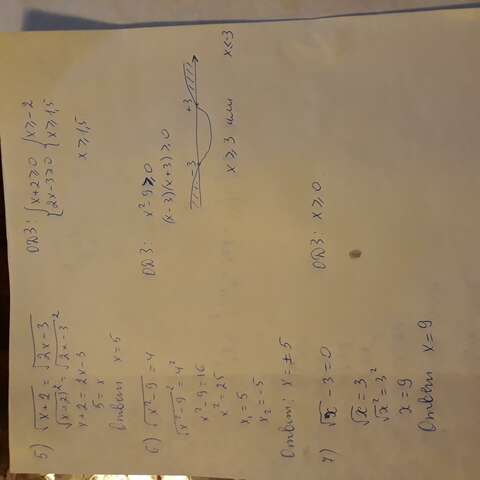 5) √x+2 = √2x-3
√(x+2)² = √2x-3²
x+2 = 2x-3
5 = x
Ответ x=5
ОДЗ: { x+2≥0 { x≥-2
{ 2x-3≥0 { x≥1,5
x≥1,5
6) √x²-9 = 4
√x²-9² = 4²
x²-9=16
x²=25
x₁=5
x₂=-5
Ответ: x=±5
ОДЗ: x²-9≥0
(x-3)(x+3)≥0
-3 +3
x≥3 или x≤-3
7) √x -3=0
√x=3
√x²=3²
x=9
Ответ x=9
ОДЗ: x≥0